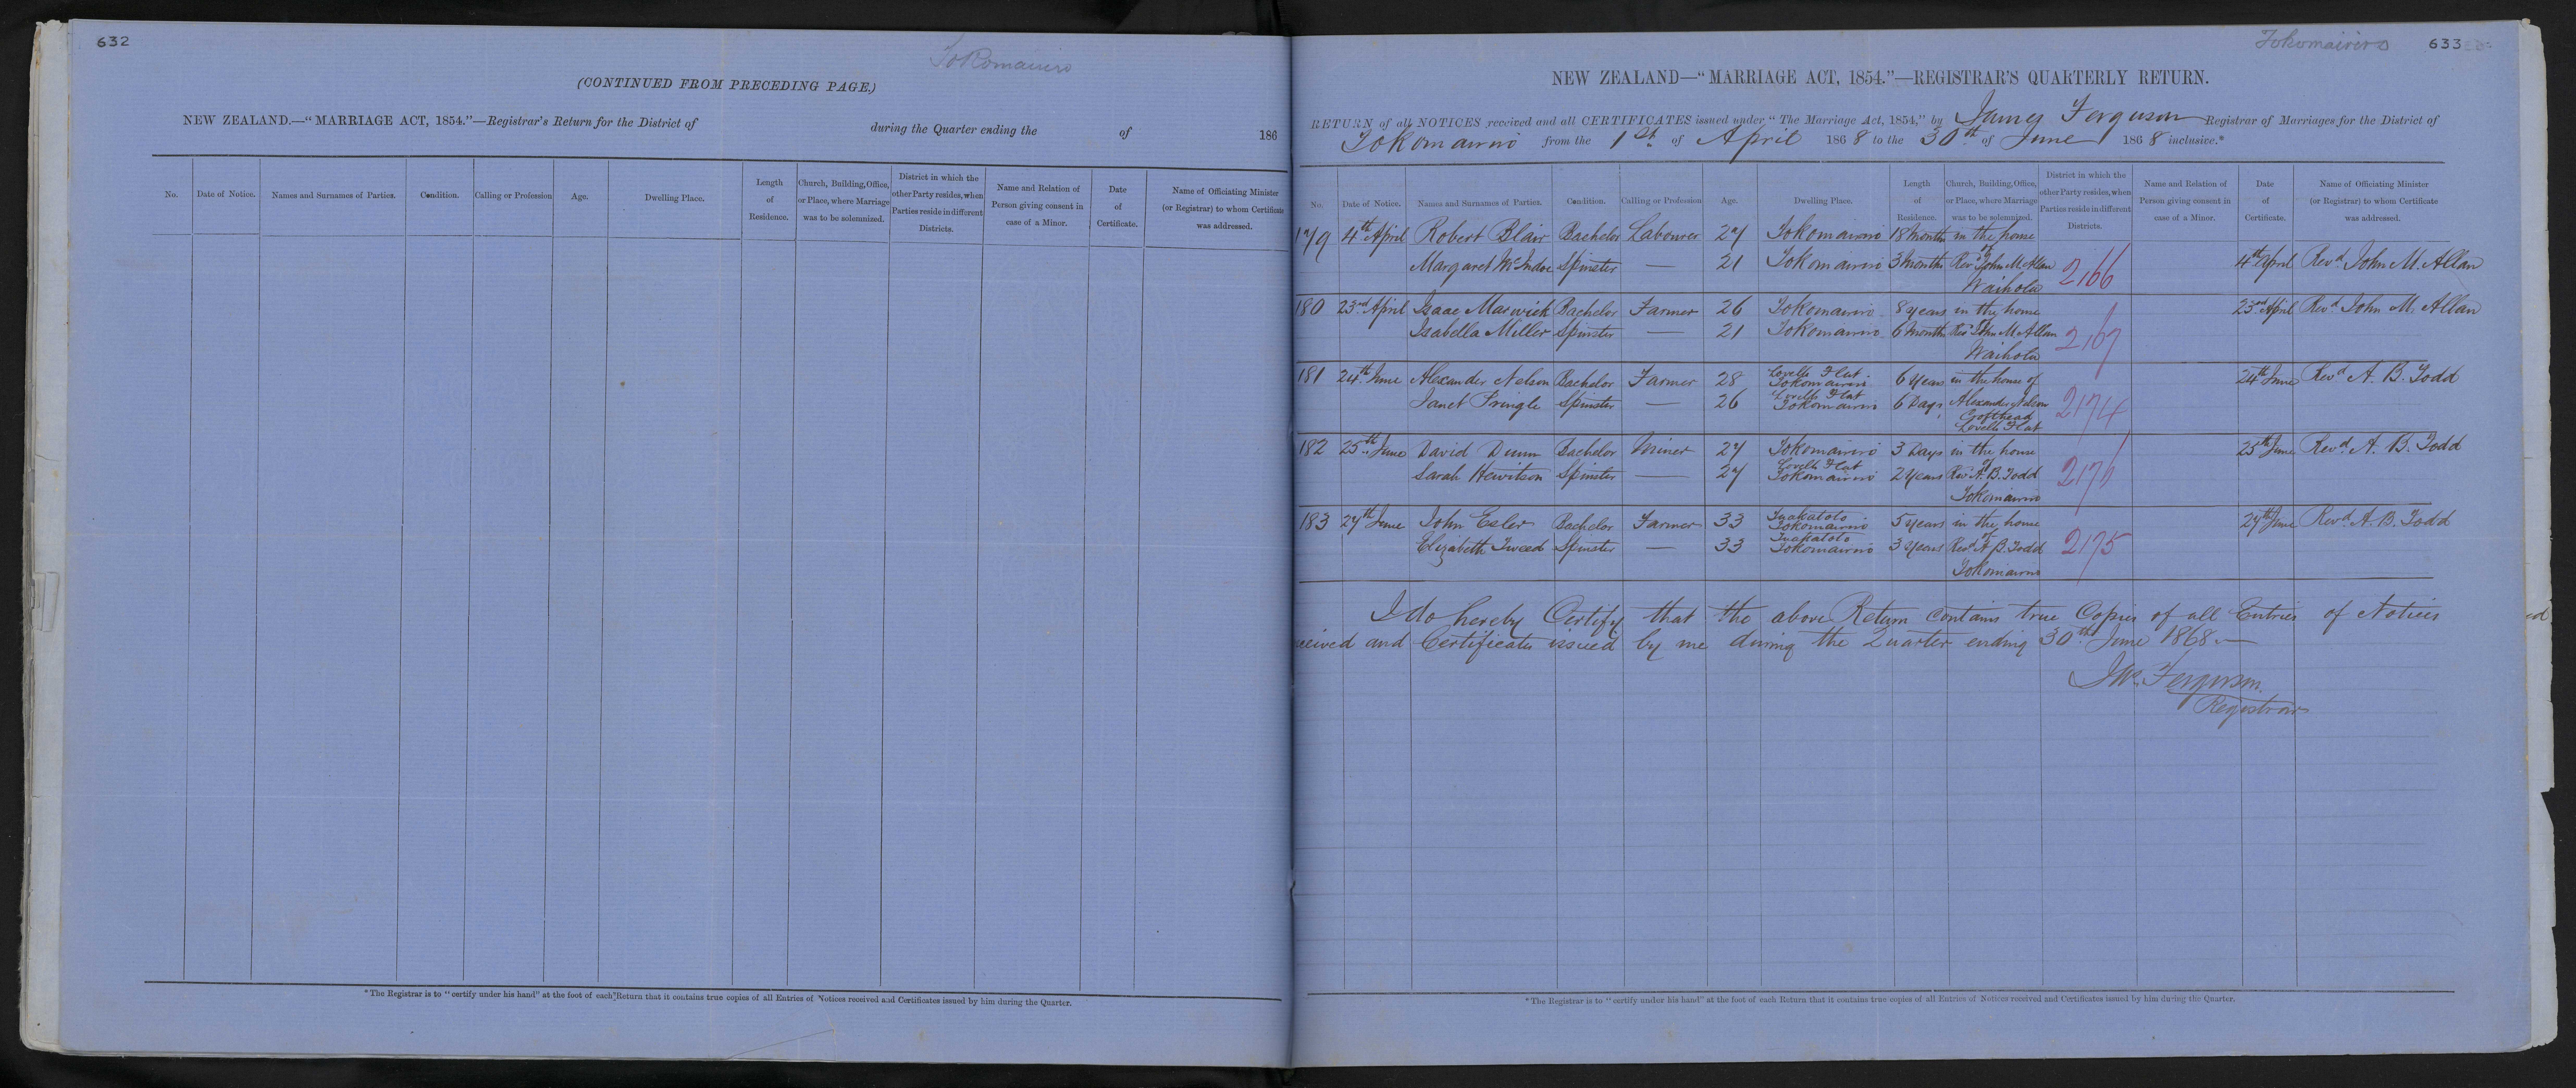 632
Tokomairiro
(CONTINUED FROM PRECEDING PAGE.)
NEW ZEALAND.—“MARRIAGE ACT, 1854.”—Registrar's Return for the District of during the Quarter ending the of 186
No. Date of Notice. Names and Surnames of Parties. Condition. Calling or Profession Age. Dwelling Place. Length of Residence. Church, Building, Office, or Place, where Marriage was to be solemnized. District in which the other Party resides, when Parties reside in different Districts. Name and Relation of Person giving consent in case of a Minor. Date of Certificate. Name of Officiating Minister (or Registrar) to whom Certificate was addressed.
*The Registrar is to “certify under his hand” at the foot of each Return that it contains true copies of all Entries of Notices received and Certificates issued by him during the Quarter.
Tokomairiro 633
NEW ZEALAND—“MARRIAGE ACT, 1854.”—REGISTRAR'S QUARTERLY RETURN.
RETURN of all NOTICES received and all CERTIFICATES issued under “The Marriage Act, 1854,” by James Ferguson Registrar of Marriages for the District of
Tokomairiro from the 1st of April 1868 to the 30th of June 1868 inclusive.*
No. Date of Notice. Names and Surnames of Parties. Condition. Calling or Profession Age. Dwelling Place. Length of Residence. Church, Building, Office, or Place, where Marriage was to be solemnized. District in which the other Party resides, when Parties reside in different Districts. Name and Relation of Person giving consent in case of a Minor. Date of Certificate. Name of Officiating Minister (or Registrar) to whom Certificate was addressed.
179 4th April Robert Blair Bachelor Labourer 27 Tokomairiro 18 Months in the house of
Margaret McIndoe Spinster — 21 Tokomairiro 3 Months Revd John M. Allan 2166 4th April Revd John M. Allan
Waihola
180 23rd April Isaac Marwick Bachelor Farmer 26 Tokomairiro 8 years in the house of 23rd April Revd John M. Allan
Isabella Miller Spinster — 21 Tokomairiro 6 Months Revd John M Allan 2167
Waihola
181 24th June Alexander Nelson Bachelor Farmer 28 Lovells Flat Tokomairiro 6 Years in the house of 24th June Revd A. B. Todd
Janet Pringle Spinster — 26 Lovells Flat Tokomairiro 6 Days Alexander Nelson 2174
Crofthead
Lovells Flat
182 25th June David Dunn Bachelor Miner 27 Tokomairiro 3 Days in the house of 25th June Revd A. B. Todd
Sarah Hewitson Spinster — 27 Lovells Flat Tokomairiro 2 Years Revd A. B. Todd 2176
Tokomairiro
183 27th June John Esler Bachelor Farmer 33 Tuakatoto Tokomairiro 5 years in the house of 27th June Revd A. B. Todd
Elizabeth Tweed Spinster — 33 Tuakatoto Tokomairiro 3 Years Revd A. B. Todd 2175
Tokomairiro
I do hereby Certify that the above Return contains true Copies of all Entries of Notices
received and Certificates issued by me during the Quarter ending 30th June 1868
Jas. Ferguson
Registrar
*The Registrar is to “certify under his hand” at the foot of each Return that it contains true copies of all Entries of Notices received and Certificates issued by him during the Quarter.